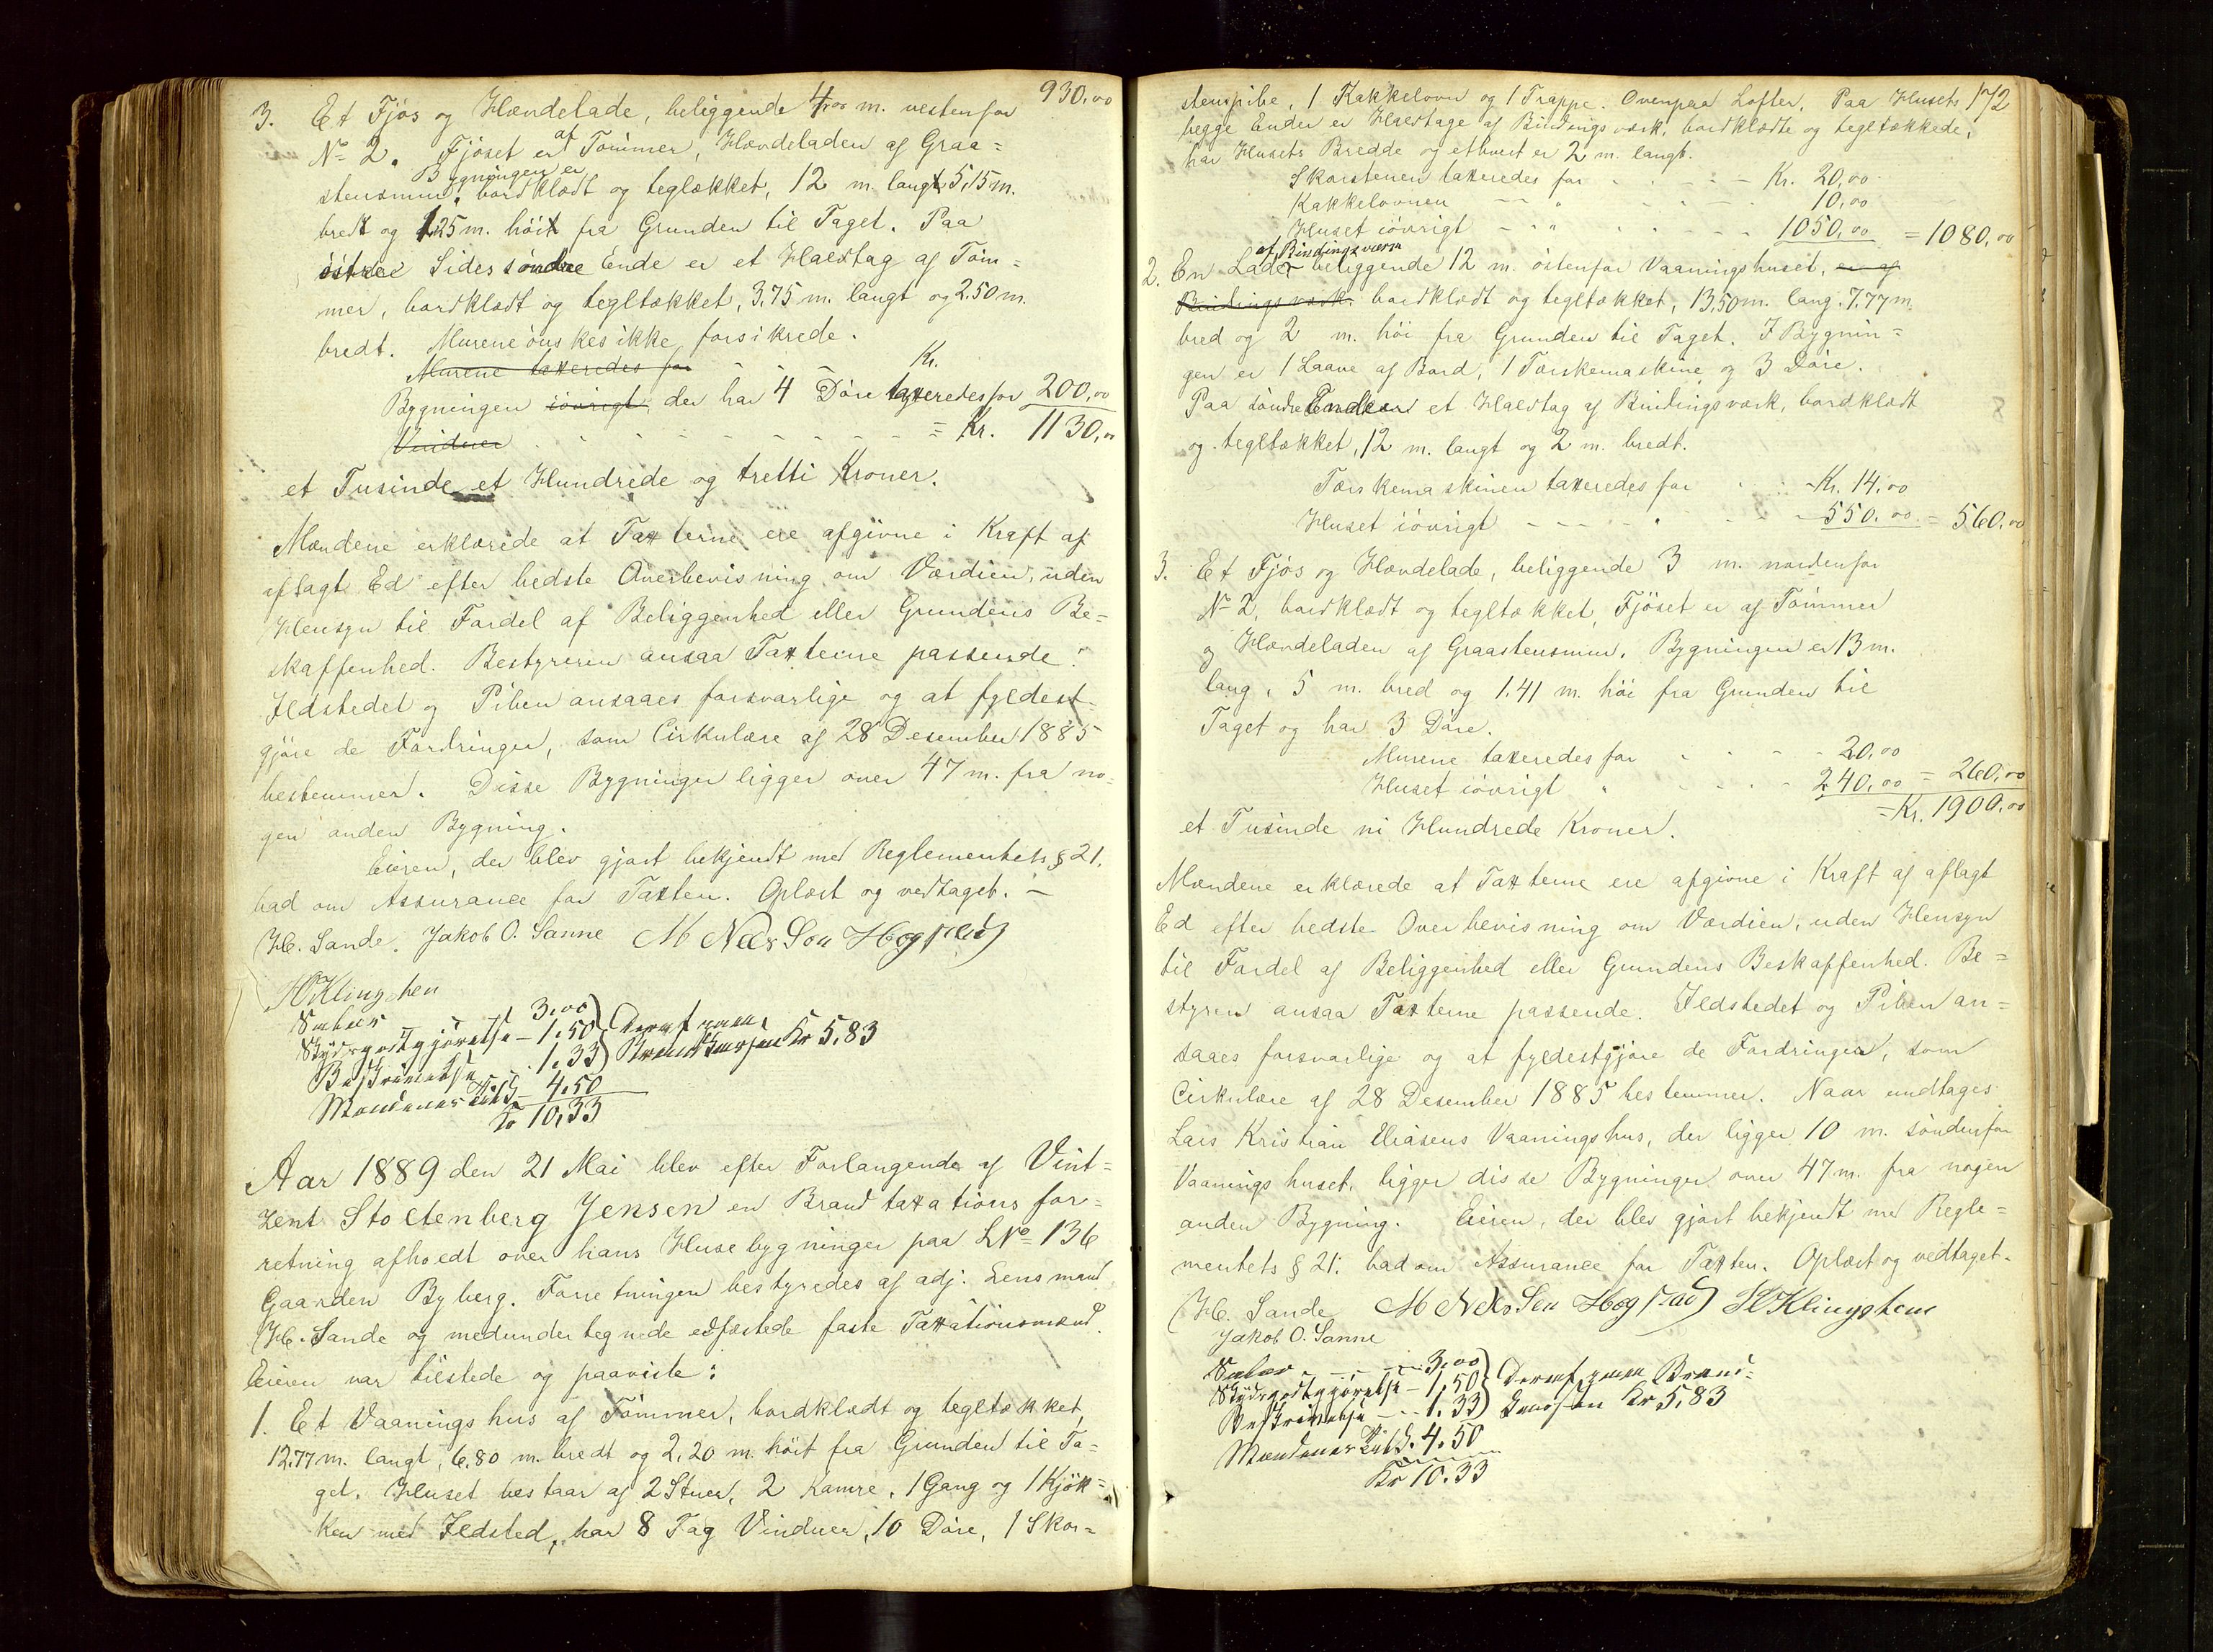 930,00
3. Et Fjøs og Hævdelade, beliggende 4,00 m. vestenfor
No 2. Fjøset er af Tømmer, Hævdeladen af Graa=
stensmur, Bygningen er bordklædt og teglækket, 12 m. langt 5,15 m.
bredt og 1,25 m. høit fra Grunden til Taget. Paa
østre Sides søndre Ende er et Halvtag af Tøm=
mer, bordklædt og tegltækket, 3,75 m. langt og 2,50 m.
bredt. Murene ønskes ikke forsikrede.
Murene taxeredes for Kr.
Bygningen iøvrigt der har 4 Døre taxeredes for 200,00
Vinduer = Kr. 1130,00
et Tusinde et Hundrede og tretti Kroner.
Mændene erklærede at Taxterne ere afgivne i Kraft af
aflagt Ed efter bedste Overbevisning om Værdien, uden
Hensyn til Fordel af Beliggenhed eller Grundens Be=
skaffenhed. Bestyreren ansaa Taxterne passende.
Ildstedet og Piben ansaaes forsvarlige og at fyldest=
gjøre de Fordringer, som Cirkulære af 28 Desember 1885
bestemmer. Disse Bygninger ligger over 47 m. fra no=
gen anden Bygning.
Eieren, der blev gjort bekjendt med Reglementets § 21.
bad om Assurance for Taxten. Oplæst og vedtaget. —
H. Sande. Jakob O. Sanne M Nels Søn Hogstad
Klingshen
Salær 3,00
Skydsgodtgjørelse – 1,50 Deraf paa
Beskrivelse 1,33 Brandkassen Kr 5,83
Mændenes Tilf. – 4,50
Kr 10,33
Aar 1889 den 21 Mai blev efter Forlangende af Vint=
zent Stoltenberg Jensen en Brandtaxationsfor=
retning afholdt over hans Husebygninger paa LNo 136
Gaarden Byberg. Forretningen bestyredes af adj. Lensmand
H. Sande og medundertegnede edfæstede faste Taxationsmænd.
Eieren var tilstede og paaviste:
1. Et Vaaningshus af Tømmer, bordklædt og tegltækket,
12,77 m. langt, 6,80 m. bredt og 2,20 m. høit fra Grunden til Ta=
get. Huset bestaar af 2 Stuer, 2 Kamre, 1 Gang og 1 Kjøk=
ken med Ildsted, har 8 Fag Vinduer, 10 Døre, 1 Skor=
172
stenspibe, 1 Kakkelovn og 1 Trappe. Ovenpaa Lofter. Paa Husets
begge Ender er Halvtage af Bindingsværk, bordklædte og tegltækkede,
har Husets Bredde og ethvert er 2 m. langt.
Skorstenen taxeredes for Kr. 20,00
Kakkelovnen 10,00
Huset iøvrigt 1050,00 = 1080,00
2. En Lade af Bindingsværk beliggende 12 m. østenfor Vaaningshuset, er af
Bindingsværk. bordklædt og tegltækket, 13,50 m. lang. 7,77 m.
bred og 2 m. høi fra Grunden til Taget. I Bygnin=
gen er 1 Laave af Bord, 1 Tærskemaskine og 3 Døre.
Paa søndre Ende er et Halvtag af Bindingsværk, bordklædt
og tegltækket, 12 m. langt og 2 m. bredt.
Tærskemaskinen taxeredes for Kr. 14,00
Huset iøvrigt 550,00 = 560,00
3. Et Fjøs og Hævdelade, beliggende 3 m. nordenfor
No 2, bordklædt og tegltækket, Fjøset er af Tømmer
og Hævdeladen af Graastensmur. Bygningen er 13 m.
lang, 5 m. bred og 1,41 m. høi fra Grunden til
Taget og har 3 Døre.
Murene taxeredes for 20,00
Huset iøvrigt 240,00 = 260,00
= Kr. 1900,00
et Tusinde ni Hundrede Kroner.
Mændene erklærede at Taxterne ere afgivne i Kraft af aflagt
Ed efter bedste Overbevisning om Værdien, uden Hensyn
til Fordel af Beliggenhed eller Grundens Beskaffenhed. Be=
styren ansaa Taxterne passende. Ildstedet og Piben an=
saaes forsvarlige og at fyldestgjøre de Fordringer, som
Cirkulære af 28 Desember 1885 bestemmer. Naar undtages
Lars Kristian Eliasens Vaaningshus, der ligger 10 m. søndenfor
Vaaningshuset, ligger disse Bygninger over 47 m. fra nogen
anden Bygning. Eieren, der blev gjort bekjendt med Regle=
mentets § 21. bad om Assurance for Taxten. Oplæst og vedtaget.
H. Sande M Nels Søn Hogstad Klingshem
Jakob O. Sanne
Salær 3,00
Skydsgodtgjørelse – 1,50 Deraf paa Brand=
Beskrivelse 1,33 kassen Kr 5,83
Mændenes Tilf. 4,50
Kr 10.33